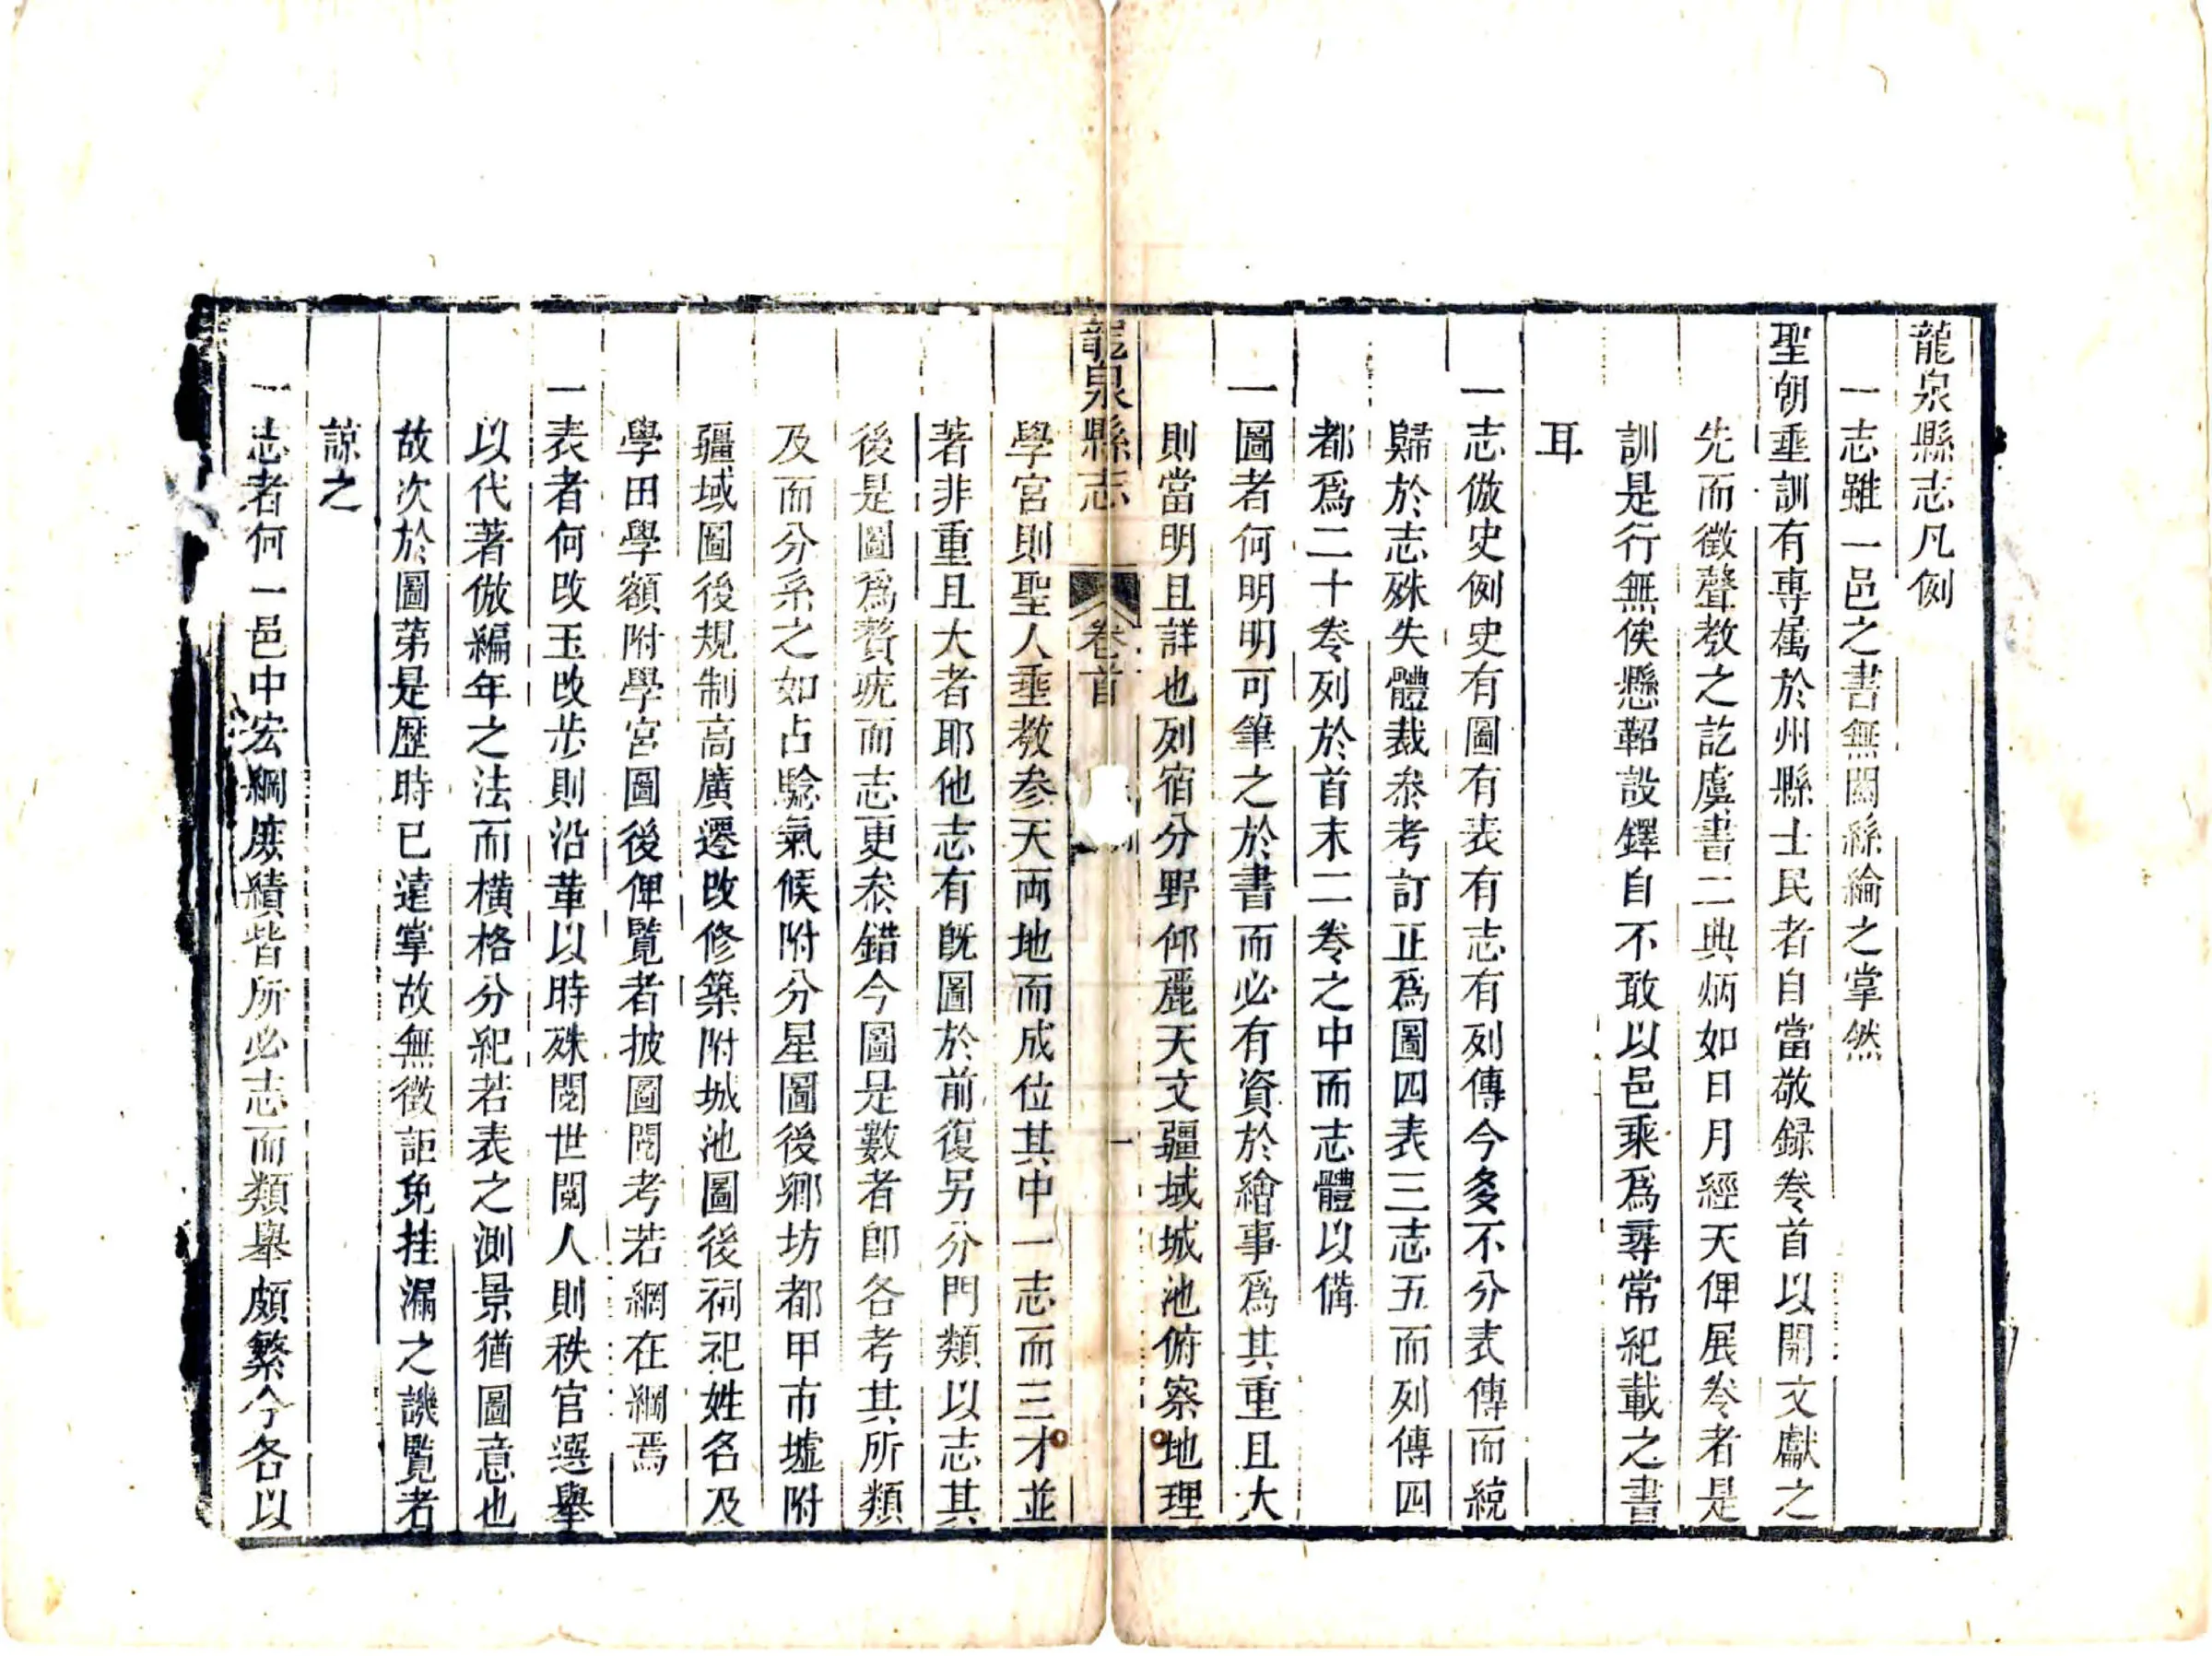 龍泉縣志凡例
一志雖一邑之書無關絲綸之掌然
聖朝垂訓有專屬於州縣士民者自當敬録卷首以開文獻之
先而徵聲教之訖虞書二典炳如日月經天俾展卷者是
訓是行無俟懸鞀設鐸自不敢以邑乘爲尋常紀載之書
耳
一志倣史例史有圖有表有志有列傳今多不分表傳而統
歸於志殊失體裁叅考訂正爲圖四表三志五而列傳四
都爲二十卷列於首末二卷之中而志體以備
一圖者何明明可筆之於書而必有資於繪事爲其重且大
則當明且詳也列宿分野仰麗天文疆域城池俯察地理
龍泉縣志
卷首
一
學宮則聖人垂教参天兩地而成位其中一志而三才並
著非重且大者耶他志有旣圖於前復另分門類以志其
後是圖爲贅疣而志更叅錯今圖是數者卽各考其所類
及而分系之如占驗氣候附分星圖後鄉坊都甲市墟附
疆域圖後規制高廣遷改修築附城池圖後祠祀姓名及
學田學額附學宮圖後俾覽者披圖閱考若網在綱焉
一表者何改玉改步則沿革以時殊閱世閱人則秩官選舉
以代著倣編年之法而橫格分紀若表之測景猶圖意也
故次於圖第是歷時已遠掌故無徵詎免挂漏之譏覽者
諒之
一志者何一邑中宏綱庶績皆所必志而類舉頗繁今各以